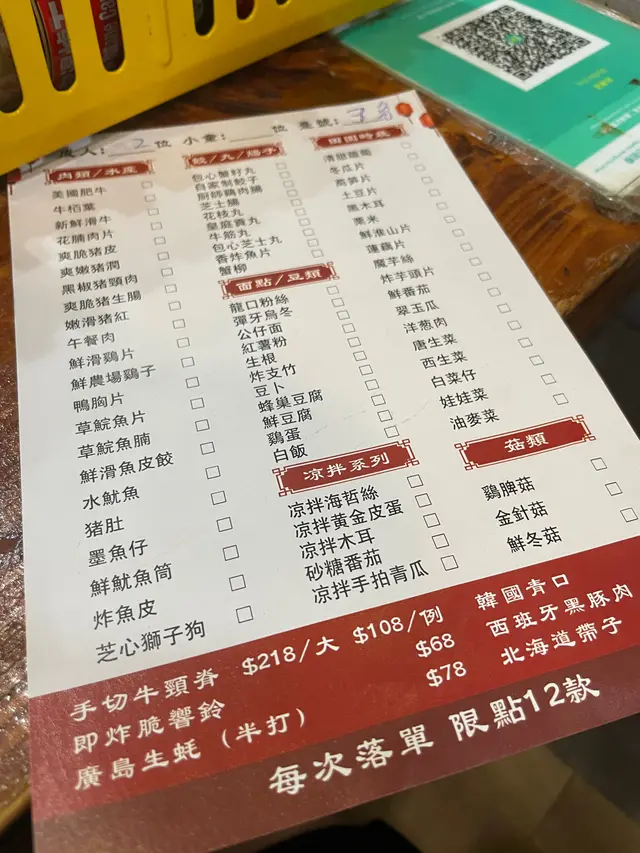 成人: 2 位 小童: 位 檯號:
肉類/水產
美國肥牛
牛栢葉
新鮮滑牛
花腩肉片
爽脆豬皮
爽嫩豬潤
黑椒豬頸肉
爽脆豬生腸
嫩滑豬紅
午餐肉
鮮滑鷄片
鮮農場鷄子
鴨胸片
草鯇魚片
草鯇魚腩
鮮滑魚皮餃
水魷魚
豬肚
墨魚仔
鮮魷魚筒
炸魚皮
芝心獅子狗
餃/丸/腸子
包心蟹籽丸
自家制餃子
廚師鷄肉腸
芝士腸
花枝丸
皇庭貢丸
牛筋丸
包心芝士丸
香炸魚片
蟹柳
面點/豆類
龍口粉絲
彈牙烏冬
公仔面
紅薯粉
生根
炸支竹
豆卜
蜂巢豆腐
鮮豆腐
鷄蛋
白飯
凉拌系列
凉拌海哲絲
凉拌黄金皮蛋
凉拌木耳
砂糖番茄
凉拌手拍青瓜
田園時蔬
清甜蘿蔔
冬瓜片
萵筍片
土豆片
黑木耳
粟米
鮮淮山片
蓮藕片
魔芋絲
炸芋頭片
鮮番茄
翠玉瓜
洋葱肉
唐生菜
西生菜
白菜仔
娃娃菜
油麥菜
菇類
鷄脾菇
金針菇
鮮冬菇
手切牛頸脊 $218/大 $108/例
即炸脆響鈴 $68
廣島生蚝 (半打) $78
韓國青口
西班牙黑豚肉
北海道帶子
每次落單 限點12款